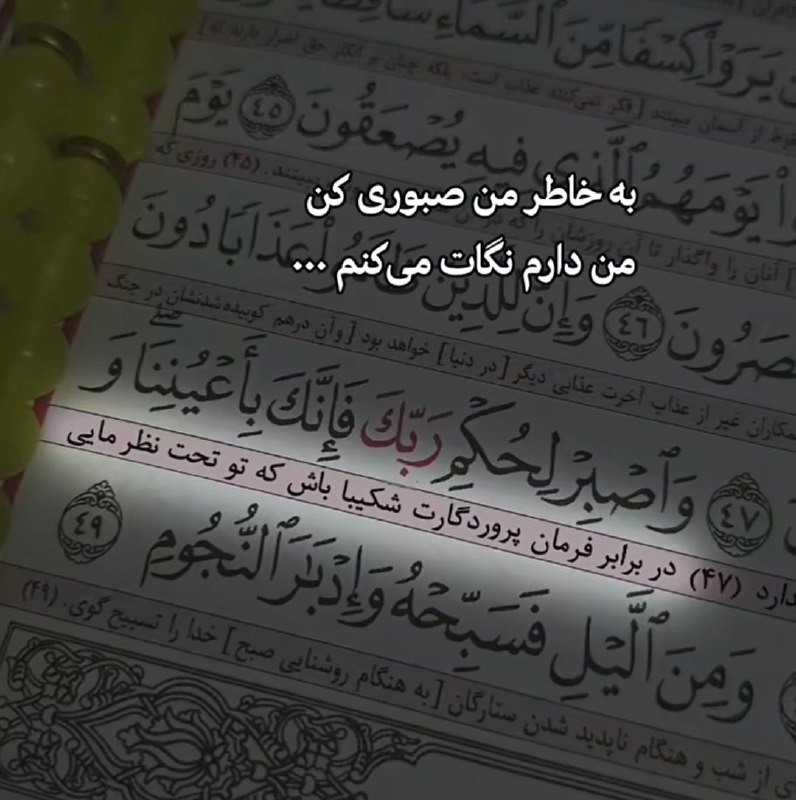 يَرَوْا۟ كِسْفًا مِّنَ ٱلسَّمَآءِ سَاقِطًا
از آسمان ببینند [ فکر نمی‌کنند عذاب است، بلکه چنان بر انکار حق اصرار دارند که ]
يَوْمَهُمُ ٱلَّذِى فِيهِ يُصْعَقُونَ ٤٥ يَوْمَ
آنان را واگذار تا آن روزشان را که ببینند. (۴۵) روزی که
به خاطر من صبوری کن
من دارم نگات می‌کنم ...
وَإِنَّ لِلَّذِينَ ظَلَمُوا۟ عَذَابًا دُونَ
٤٦
همکاران غیر از عذاب آخرت عذابی دیگر [ در دنیا ] خواهد بود [ و آن درهم کوبیده شدنشان در جنگ
٤٧ وَٱصْبِرْ لِحُكْمِ رَبِّكَ فَإِنَّكَ بِأَعْيُنِنَا ۖ وَ
دارد (۴۷) در برابر فرمان پروردگارت شکیبا باش که تو تحت نظر مایی
وَمِنَ ٱلَّيْلِ فَسَبِّحْهُ وَإِدْبَٰرَ ٱلنُّجُومِ ٤٩
از شب و هنگام ناپدید شدن ستارگان [ به هنگام روشنایی صبح ] خدا را تسبیح گوی. (۴۹)